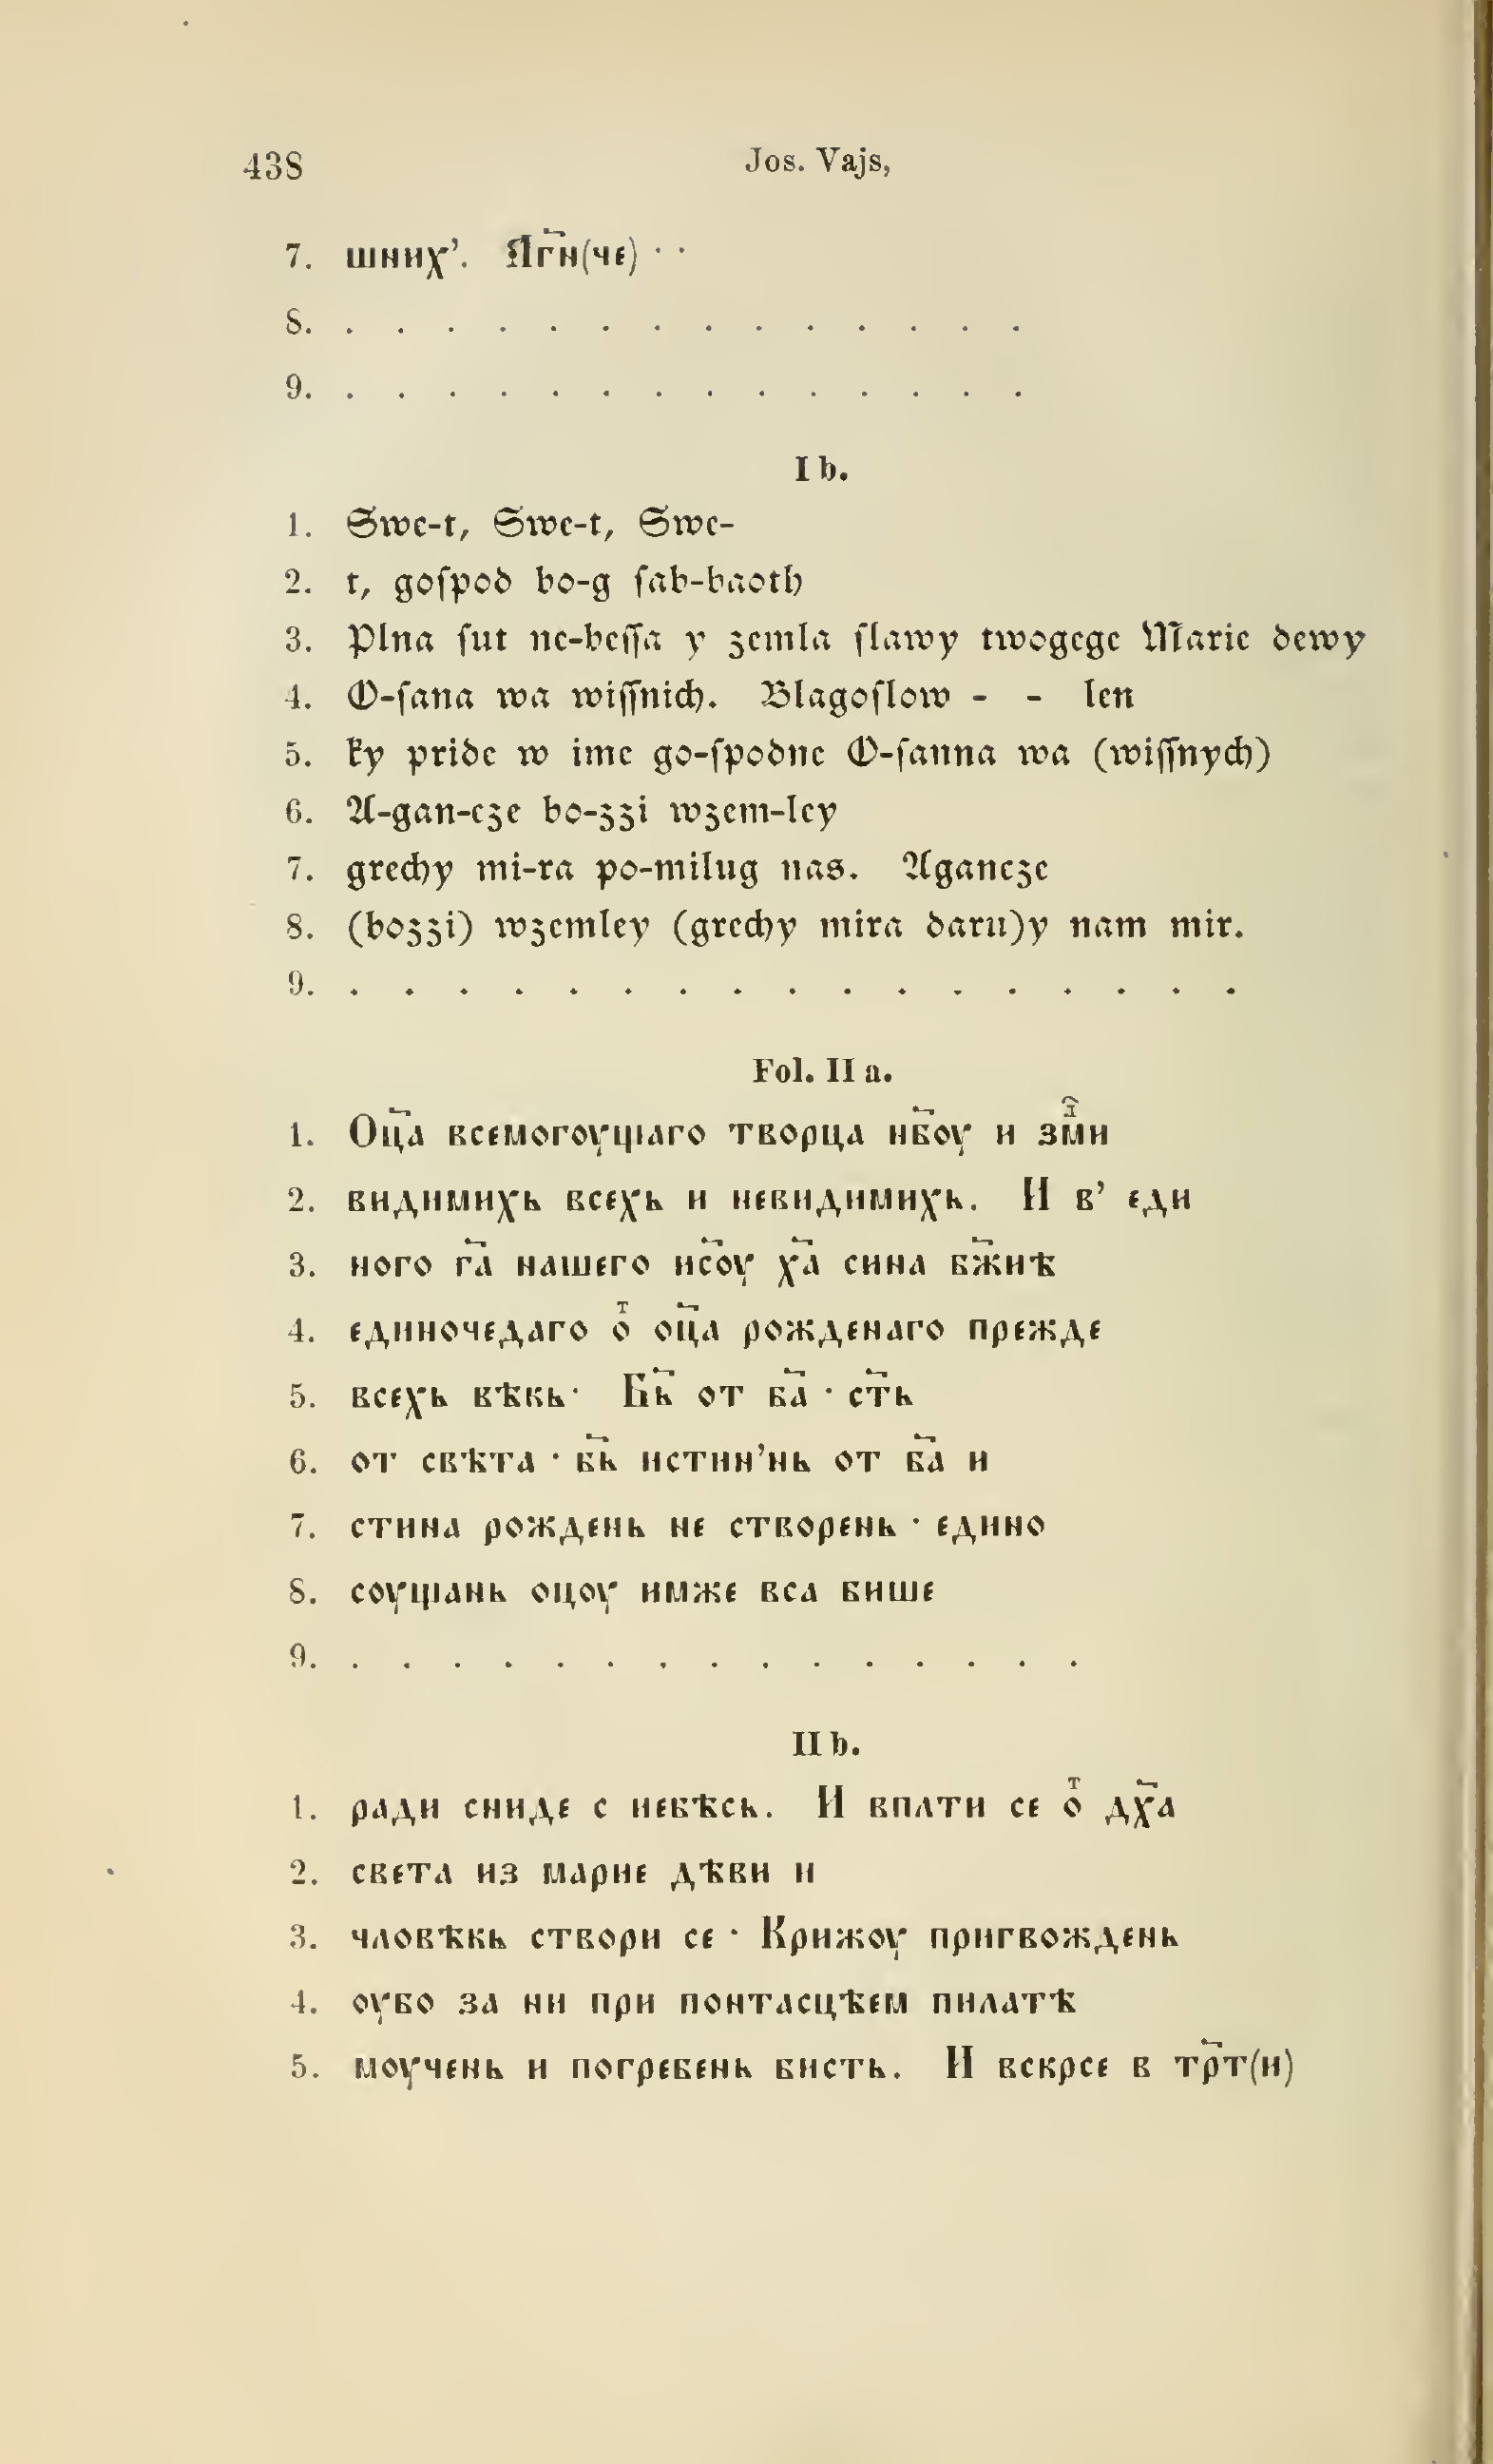 438 Jos. Vajs,
7. шних’. Агн҃(че) · ·
8. . . . . . . . . . . . . . .
9. . . . . . . . . . . . . . .
I b.
1. Swe-t, Swe-t, Swe-
2. t, goſpod bo-g ſab-baoth
3. Plna ſut ne-beſſa y zemla ſlawy twogege Marie dewy
4. O-ſana wa wiſſnich. Blagoſlow - - len
5. ky pride w ime go-ſpodne O-ſanna wa (wiſſnych)
6. A-gan-cze bo-zzi wzem-ley
7. grechy mi-ra po-milug nas. Agancze
8. (bozzi) wzemley (grechy mira daru)y nam mir.
9. . . . . . . . . . . . . . . . . .
Fol. II a.
1. Оц҃а всемогоуціаго творца нб҃оу и зм҃ⷤи
2. видимихь всехь и невидимихь. И в’ еди
3. ного га҃ нашего ис҃оу ха҃ сина бж҃иѣ
4. единочедаго оⷮ оц҃а рожденаго прежде
5. всехь вѣкь· Бь҃ от ба҃ · ст҃ь
6. от свѣта · бь҃ истин’нь от ба҃ и
7. стина рождень не створень · едино
8. соуціань оцоу имже вса бише
9. . . . . . . . . . . . . . . .
II b.
1. ради сниде с небѣсь. И вплти се оⷮ дх҃а
2. света из марие дѣви и
3. чловѣкь створи се · Крижоу пригвождень
4. оубо за ни при понтасцѣем пилатѣ
5. моучень и погребень бисть. И вскрсе в тр҃т(и)